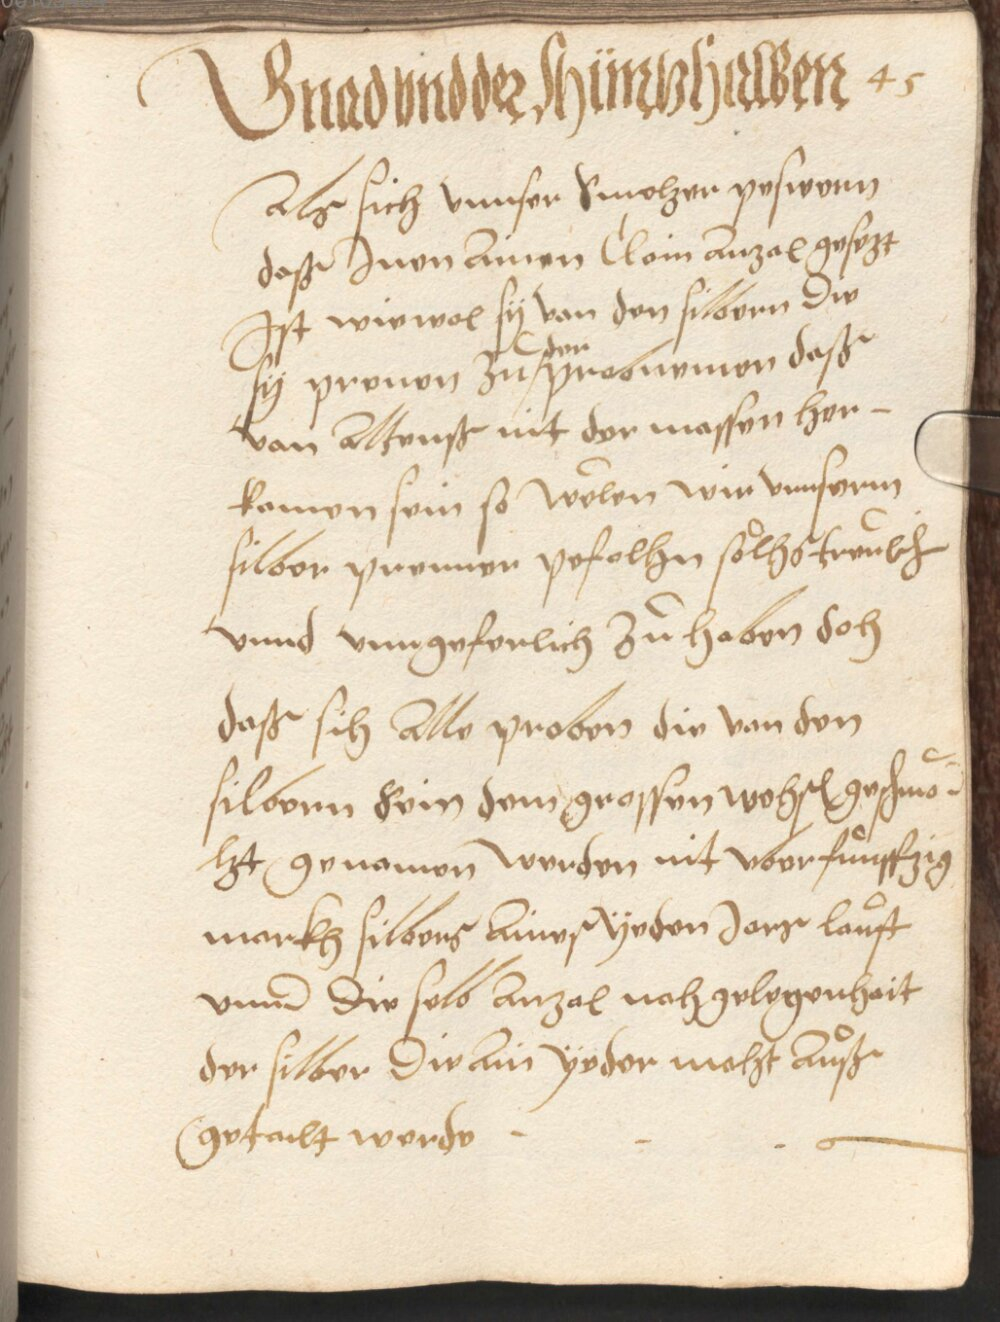 Gnad vnd der Müntz halben 45
Alß sich vnnser Smeltzer pesweren
daß Inen ainen Clain anzal gesetzt
Ist wiewol sy von den silbern die
sy prenen zu der probnemen daß
von alltenß nit der massen her-
komen sein so wölen wir vnnserm
silber prenner pefelhn sölhs treulich
vnnd vnngeferlich zu haben doh
daß sih alle proben die von den
silbern Sein dem grossen wehsl geschmö-
ltzt genomen werden nit vber funffzig
markh silbers aines yeden Jarß lauft
vnnd die selb anzal nah gelegenhait
der silber die ain yeder maht auß
getailt werde